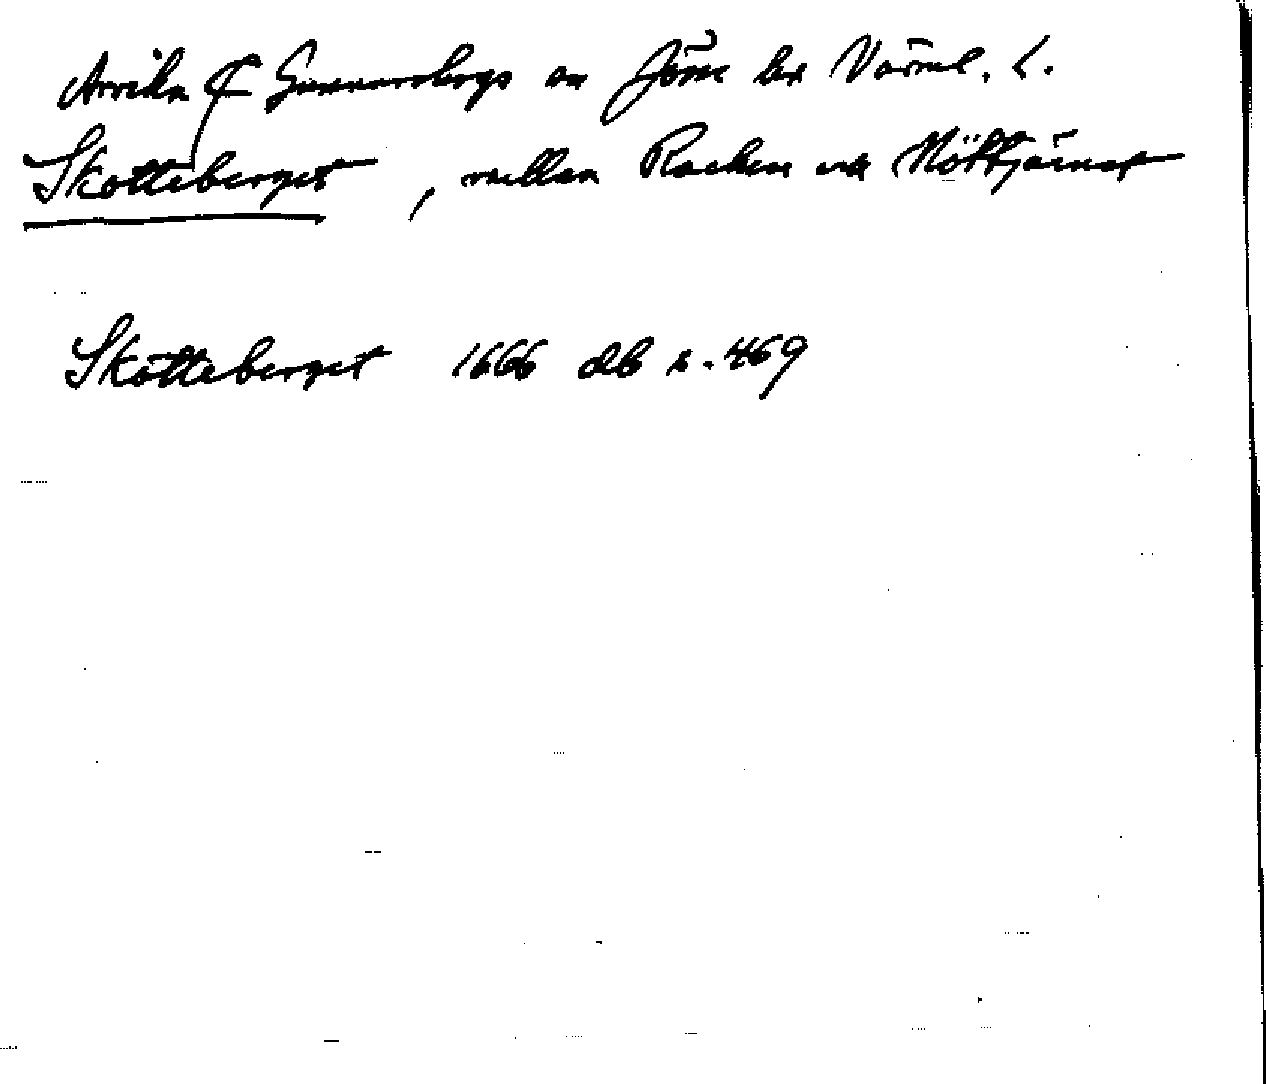 Arvika Gunnarskogs sn Jösse hd Värml. L.
Skotteberget, mellan Racken och Nötttjärnet
Skotteberget 1666 db s. 469